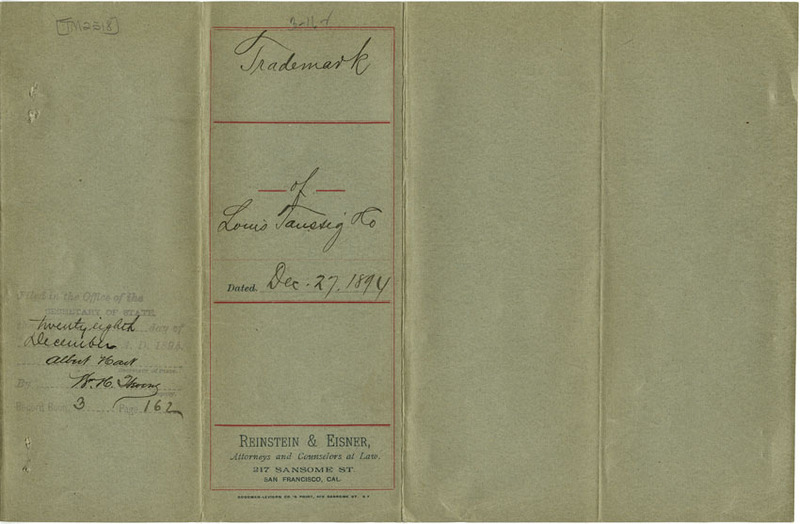 TM2318
Trademark
of
Louis Taussig & Co
Dated. Dec. 27, 1894
REINSTEIN & EISNER,
Attorneys and Counselors at Law.
217 SANSOME ST.
SAN FRANCISCO, CAL.
Filed in the Office of the
SECRETARY OF STATE
twenty eighth day of
December A. D. 189
Albert Hart
Secretary of State.
By W. H.
Record Book 3 Page 162